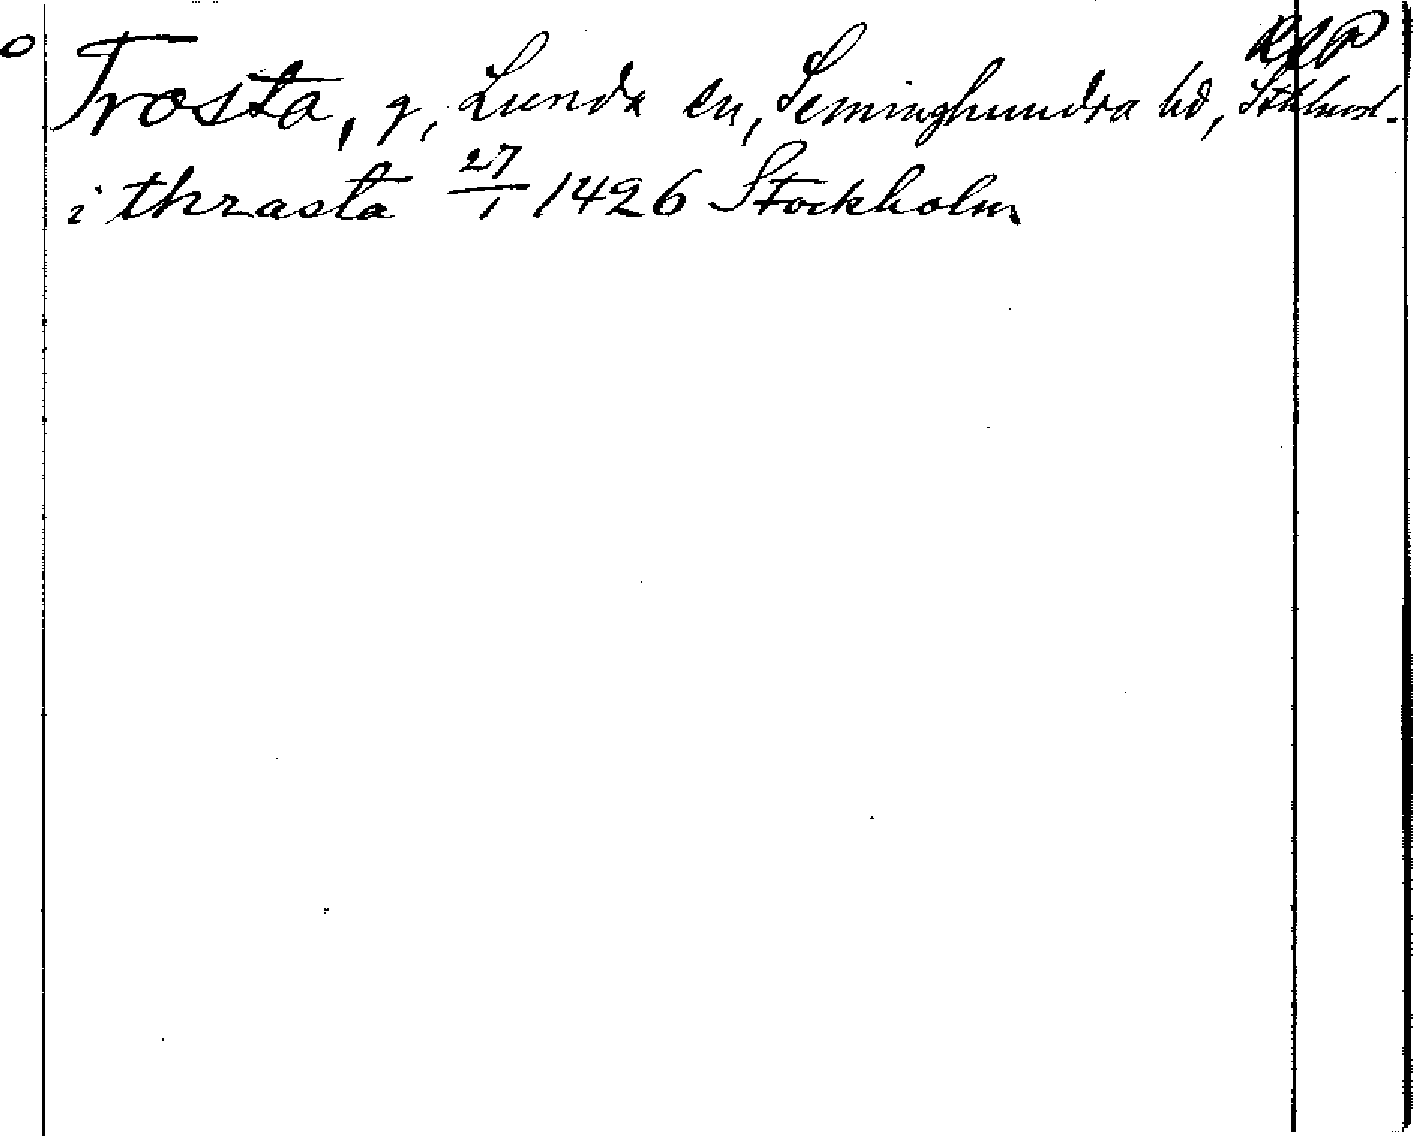 RAP
Trosta, g, Lunda sn, Seminghundra hd, Sthlms l.
i thrasta 27/1 1426 Stockholm